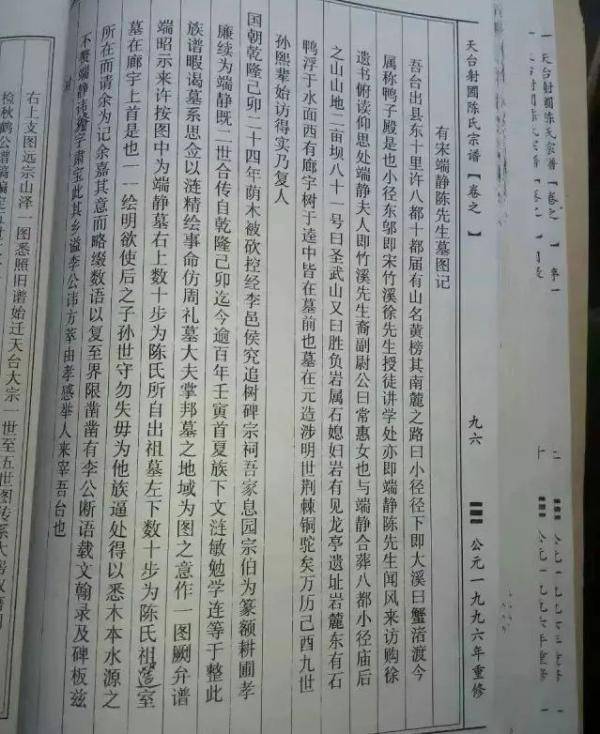 天台射圃陈氏宗谱【卷之一】
九六
公元一九九六年重修
有宋端静陈先生墓图记
吾台出县东十里许八都十都届有山名黄榜其南麓之路曰小径径下即大溪曰蟹渚渡今
属称鸭子殿是也小径东邬即宋竹溪徐先生授徒讲学处亦即端静陈先生闻风来访购徐
遗书俯读仰思处端静夫人即竹溪先生裔副尉公曰常惠女也与端静合葬八都小径庙后
之山山地二亩坝八十一号曰圣武山又曰胜负岩属石媳妇岩有见龙亭遗址岩麓东有石
鸭浮于水面西有廊宇树于逵中皆在墓前也墓在元造涉明世荆棘铜驼矣万历己酉九世
孙熙辈始访得实乃复人
国朝乾隆己卯二十四年荫木被砍控经李邑侯究追树碑宗祠吾家息园宗伯为篆额耕圃孝
廉续为端静既二世合传自乾隆己卯迄今逾百年壬寅首夏族下文涟敏勉学连等于整此
族谱暇谒墓系思佥以涟精绘事命仿周礼墓大夫掌邦墓之地域为图之意作一图劂弁谱
端昭示来许按图中为端静墓右上数十步为陈氏所自出祖墓左下数十步为陈氏祖造室
墓在廊宇上首是也一一绘明欲使后之子孙世守勿失毋为他族逼处得以悉木本水源之
所在而请余为记余嘉其意而略缀数语以复至界限凿凿有李公断语载文翰录及碑板兹
不赘端静讳字肃宝此其乡谥李公讳方莘由孝感举人来宰吾台也
右上支图远宗山泽一图悉照旧谱始迁天台大宗一世至五世图传系大房